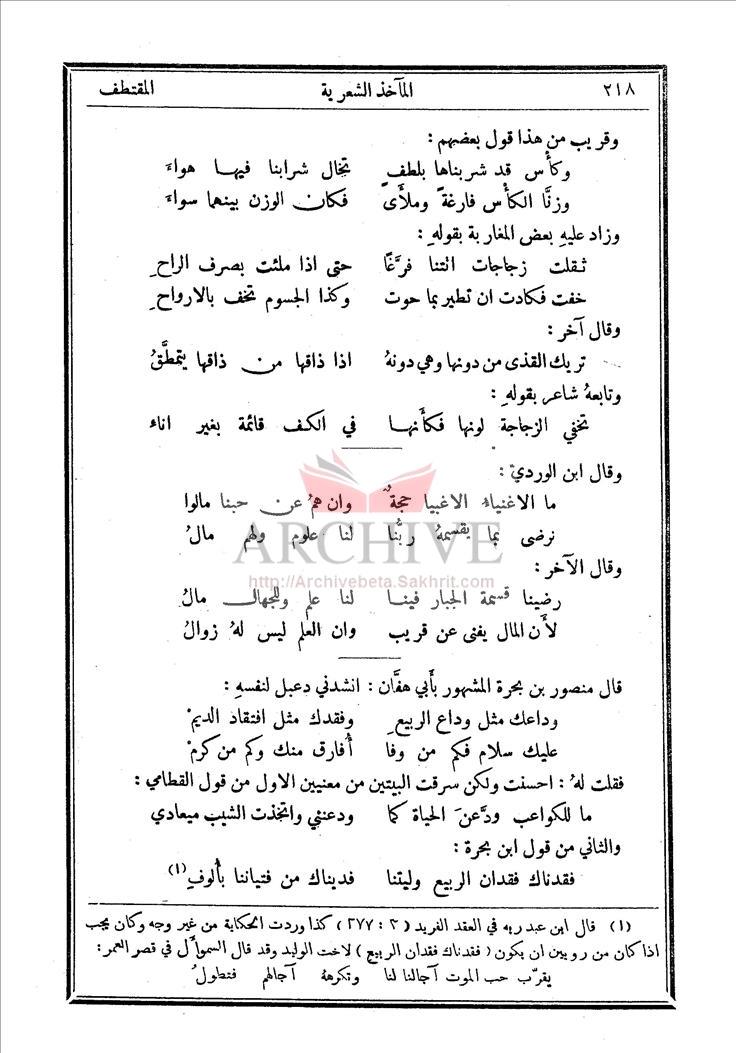 ٢١٨ المآخذ الشعرية المقتطف
وقريب من هذا قول بعضهم :
وكأس قد شربناها بلطفٍ تخال شرابنا فيها هواءَ
وزنَّا الكأس فارغةً وملأى فكان الوزن بينهما سواءَ
وزاد عليهِ بعض المغاربة بقولهِ :
ثقلت زجاجات اتتنا فرَّغًا حتى اذا ملئت بصرف الراحِ
خفت فكادت ان تطير بما حوت وكذا الجسوم تخف بالارواحِ
وقال آخر :
تريك القذى من دونها وهي دونهُ اذا ذاقها من ذاقها يتمطَّقُ
وتابعهُ شاعر بقولهِ :
تخفي الزجاجة لونها فكأنها في الكف قائمة بغير اناء
وقال ابن الورديّ :
ما الاغنياء الاغبيا حجةٌ وان همُ عن حبنا مالوا
نرضى بما يقسمهُ ربُّنا لنا علوم ولهم مالُ
ARCHIVE
http://Archivebeta.Sakhrit.com
وقال الآخر :
رضينا قسمة الجبار فينا لنا علم وللجهال مالُ
لأن المال يفنى عن قريب وان العلم ليس لهُ زوالُ
قال منصور بن بحرة المشهور بأبي هفَّان : انشدني دعبل لنفسهِ :
وداعك مثل وداع الربيعِ وفقدك مثل افتقاد الديمْ
عليك سلام فكم من وفا أفارق منك وكم من كرمْ
فقلت لهُ : احسنت ولكن سرقت البيتين من معنيين الاول من قول القطامي :
ما للكواعب ودَّعنَ الحياة كما ودعنني واتخذت الشيب ميعادي
والثاني من قول ابن بحرة :
فقدناك فقدان الربيع وليتنا فديناك من فتياننا بألوفِ (١)
(١) قال ابن عبد ربه في العقد الفريد ( ٣ : ٢٧٧ ) كذا وردت الحكاية من غير وجه وكان يجب
اذا كان من روبين ان يكون ( فقدناك فقدان الربيع ) لاخت الوليد وقد قال السموأل في قصر العمر :
يقرّب حب الموت آجالنا لنا وتكرههُ آجالهم فتطولُ